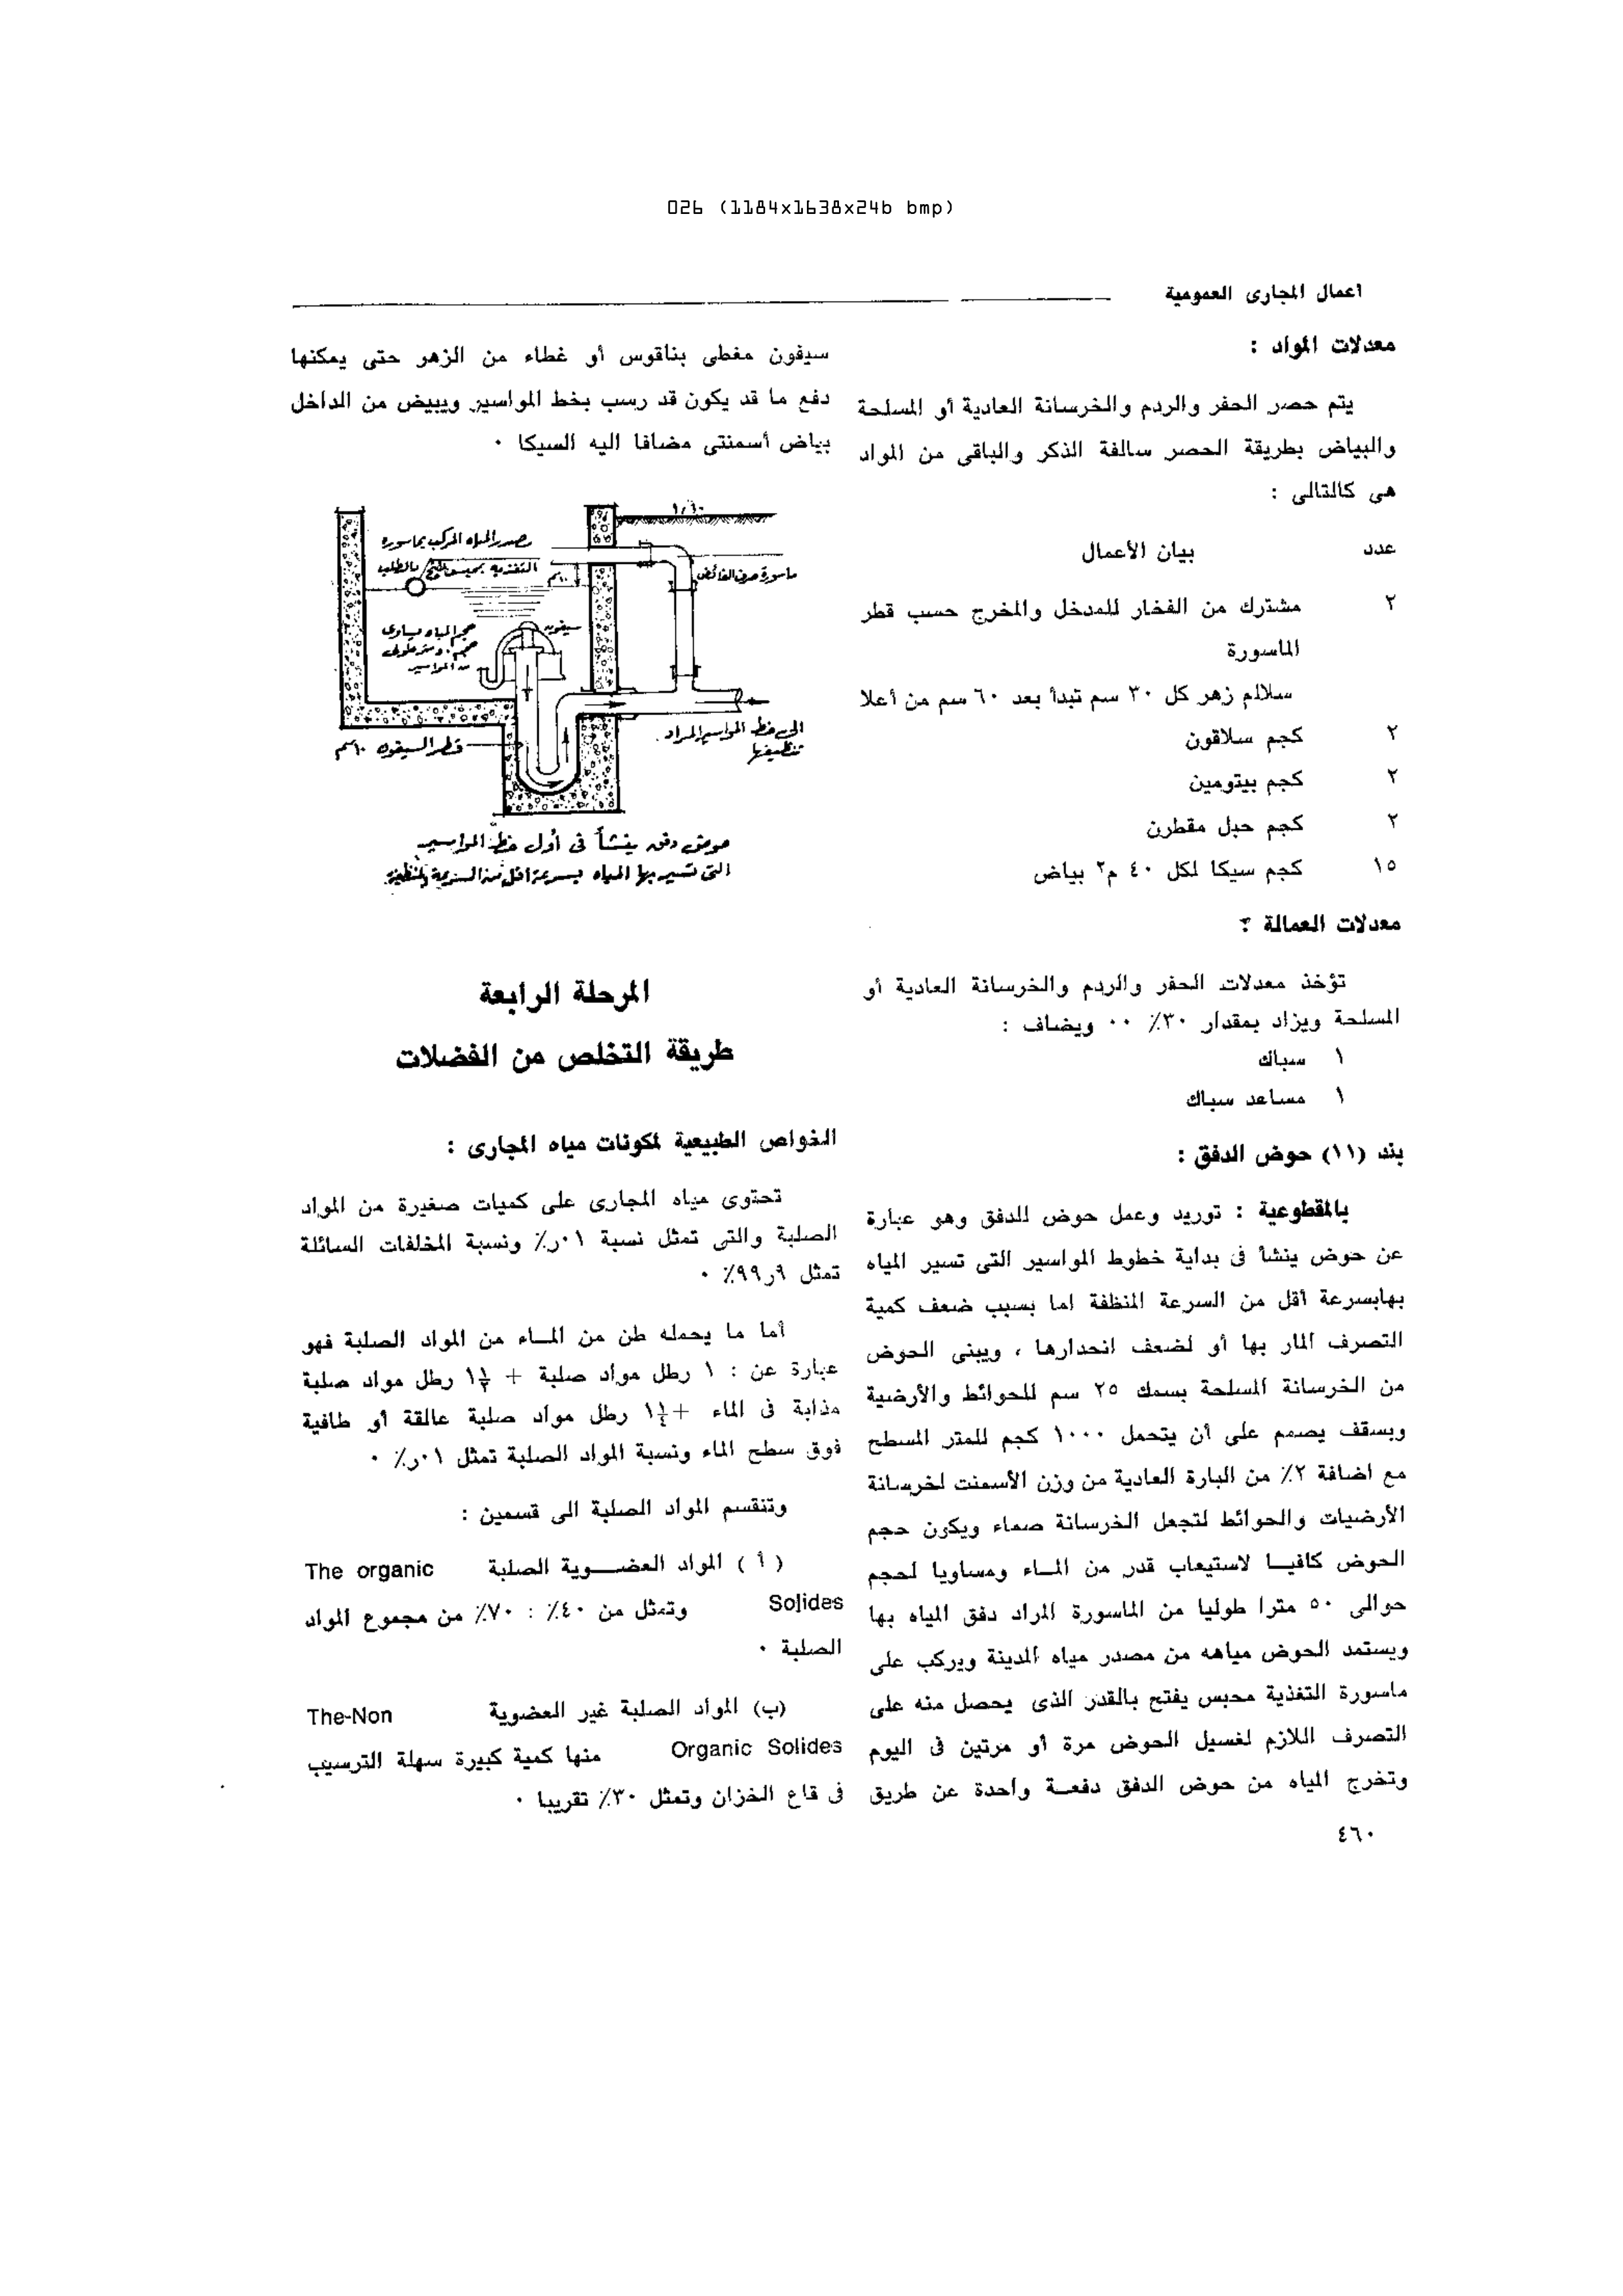 026 (1184x1638x24b bmp)
اعمال المجارى العمومية
معدلات المواد :
يتم حصر الحفر والردم والخرسانة العادية أو المسلحة
والبياض بطريقة الحصر سالفة الذكر والباقى من المواد
هى كالتالى :
عدد بيان الأعمال
٢ مشترك من الفخار للمدخل والمخرج حسب قطر
الماسورة
سلالم زهر كل ٣٠ سم تبدأ بعد ٦٠ سم من أعلا
٢ كجم سلاقون
٢ كجم بيتومين
٢ كجم حبل مقطرن
١٥ كجم سيكا لكل ٤٠ م٢ بياض
معدلات العمالة :
تؤخذ معدلات الحفر والردم والخرسانة العادية أو
المسلحة ويزاد بمقدار ٣٠٪ ٠٠ ويضاف :
١ سباك
١ مساعد سباك
بند (١١) حوض الدفق :
بالمقطوعية : توريد وعمل حوض للدفق وهو عبارة
عن حوض ينشأ فى بداية خطوط المواسير التى تسير المياه
بهابسرعة أقل من السرعة المنظفة اما بسبب ضعف كمية
التصرف المار بها أو لضعف انحدارها ، ويبنى الحوض
من الخرسانة المسلحة بسمك ٢٥ سم للحوائط والأرضية
وبسقف يصمم على أن يتحمل ١٠٠٠ كجم للمتر المسطح
مع اضافة ٢٪ من البارة العادية من وزن الأسمنت لخرسانة
الأرضيات والحوائط لتجعل الخرسانة صماء ويكون حجم
الحوض كافيــا لاستيعاب قدر من المــاء ومساويا لحجم
حوالى ٥٠ مترا طوليا من الماسورة المراد دفق المياه بها
ويستمد الحوض مياهه من مصدر مياه المدينة ويركب على
ماسورة التغذية محبس يفتح بالقدر الذى يحصل منه على
التصرف اللازم لغسيل الحوض مرة أو مرتين فى اليوم
وتخرج المياه من حوض الدفق دفعــة واحدة عن طريق
سيفون مغطى بناقوس أو غطاء من الزهر حتى يمكنها
دفع ما قد يكون قد رسب بخط المواسير ويبيض من الداخل
بياض أسمنتى مضافا اليه السيكا ٠
مصدر المياه المركب بماسورة
التغذيه بمحبس
ماسورة صرف الفائض
حجم المياه مساوى
سيفون
من المواسير
الى خط المواسير المراد
تنظيفها
قطر السيفون ١٠سم
حوض دفق ينشأ فى أول خط المواسير
التى تسير بها المياه بسرعة اقل من السرعة المنظفة
المرحلة الرابعة
طريقة التخلص من الفضلات
الخواص الطبيعية لمكونات مياه المجارى :
تحتوى مياه المجارى على كميات صغيرة من المواد
الصلبة والتى تمثل نسبة ٠١ر٪ ونسبة المخلفات السائلة
تمثل ٩ر٩٩٪ ٠
أما ما يحمله طن من المــاء من المواد الصلبة فهو
عبارة عن : ١ رطل مواد صلبة + ١½ رطل مواد صلبة
مذابة فى الماء + ١¼ رطل مواد صلبة عالقة أو طافية
فوق سطح الماء ونسبة المواد الصلبة تمثل ٠١ر٪ ٠
وتنقسم المواد الصلبة الى قسمين :
( أ ) المواد العضــوية الصلبة The organic
Solides وتمثل من ٤٠٪ : ٧٠٪ من مجموع المواد
الصلبة ٠
(ب) المواد الصلبة غير العضوية The-Non
Organic Solides منها كمية كبيرة سهلة الترسيب
فى قاع الخزان وتمثل ٣٠٪ تقريبا ٠
٤٦٠